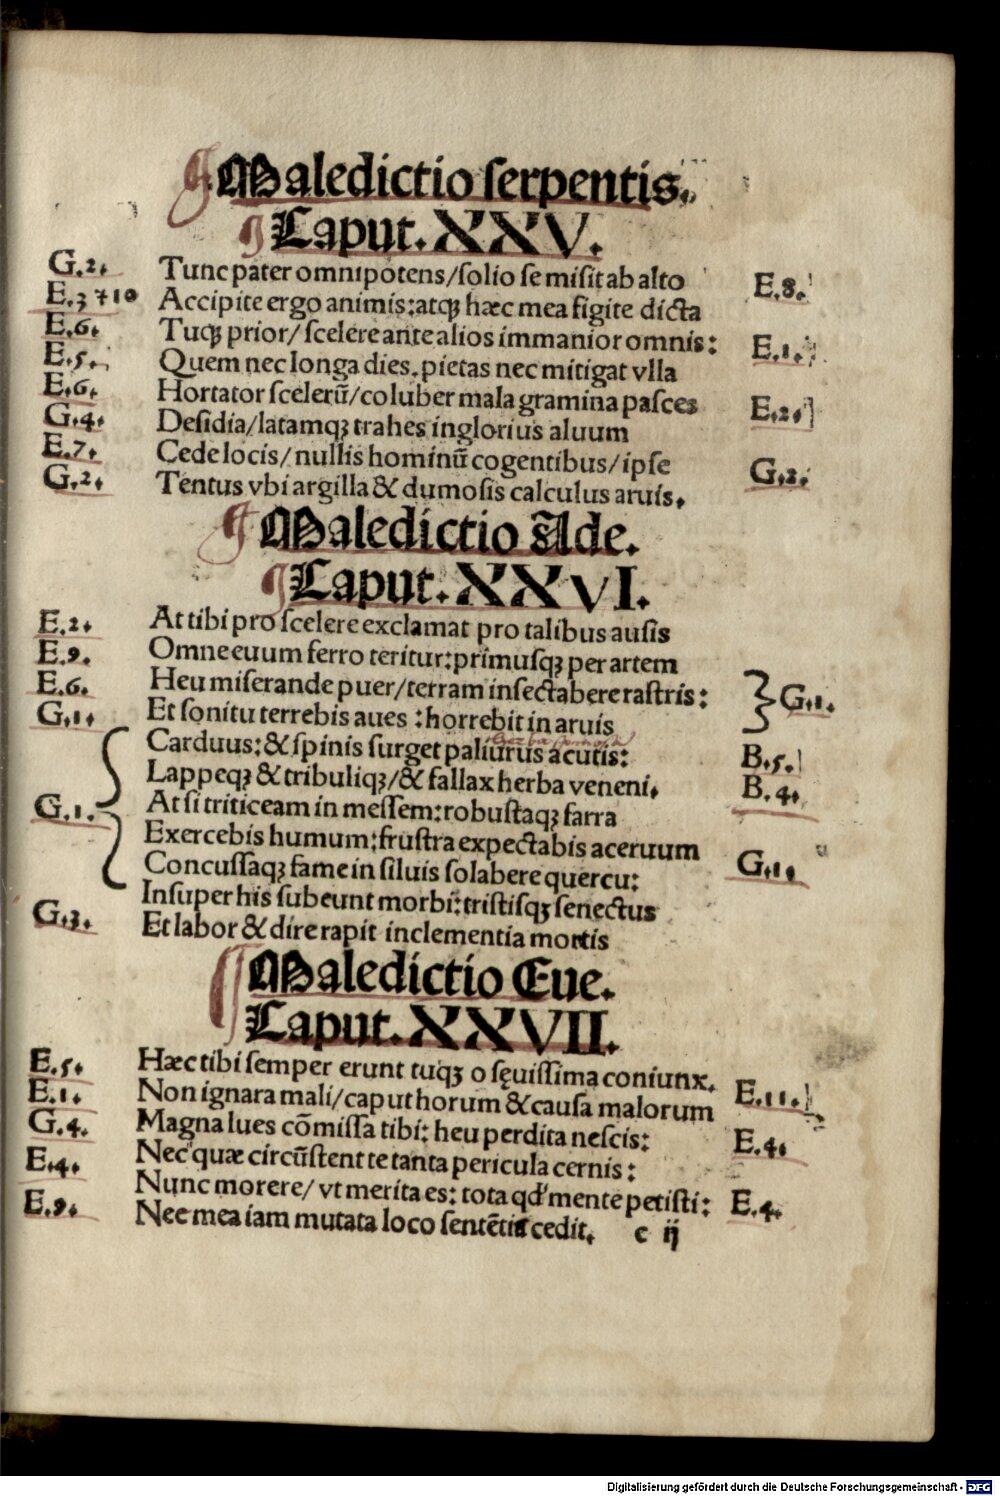 Maledictio ſerpentis.
Caput. XXV.
G.2. Tunc pater omnipotens/ſolio ſe miſit ab alto E.8.
E.3 7 10 Accipite ergo animis:atqꝫ hæc mea figite dicta
E.6. Tuqꝫ prior/ ſcelere ante alios immanior omnis: E.1.
E.5. Quem nec longa dies. pietas nec mitigat vlla
E.6. Hortator ſcelerū/coluber mala gramina paſces E.2.
G.4. Deſidia/latamqꝫ trahes inglorius aluum
E.7. Cede locis/ nullis hominū cogentibus/ ipſe G.2.
G.2. Tentus vbi argilla & dumoſis calculus aruis.
Maledictio Ade.
Caput. XXVI.
E.2. At tibi pro ſcelere exclamat pro talibus auſis
E.9. Omne euum ferro teritur:primuſqꝫ per artem
E.6. Heu miſerande puer/terram inſectabere raſtris: G.1.
G.1. Et ſonitu terrebis aues :horrebit in aruis
Carduus:& ſpinis ſurget paliurus acutis: B.5.
Lappeqꝫ & tribuliqꝫ/& fallax herba veneni. B.4.
G.1. At ſi triticeam in meſſem:robuſtaqꝫ farra
Exercebis humum:fruſtra expectabis aceruum
Concuſſaqꝫ fame in ſiluis ſolabere quercu: G.1.
Inſuper his ſubeunt morbi:triſtiſqꝫ ſenectus
G.3. Et labor & dire rapit inclementia mortis
Maledictio Eue.
Caput. XXVII.
E.5. Hæc tibi ſemper erunt tuqꝫ o ſęuiſſima coniunx.
E.1. Non ignara mali/caput horum & cauſa malorum E.11.
G.4. Magna lues cōmiſſa tibi: heu perdita neſcis:
E.4. Nec quæ circūſtent te tanta pericula cernis : E.4.
Nunc morere/ vt merita es: tota qd' mente petiſti: E.4.
E.9. Nec mea iam mutata loco ſentētia cedit. c ij
Digitalisierung gefördert durch die Deutsche Forschungsgemeinschaft - DFG